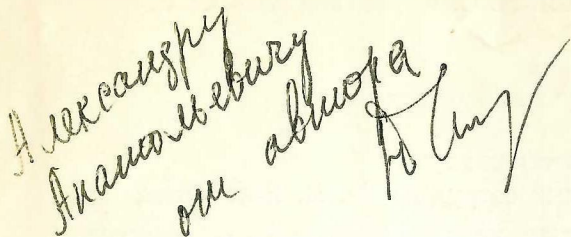 Александру
Анатольевичу
от автора